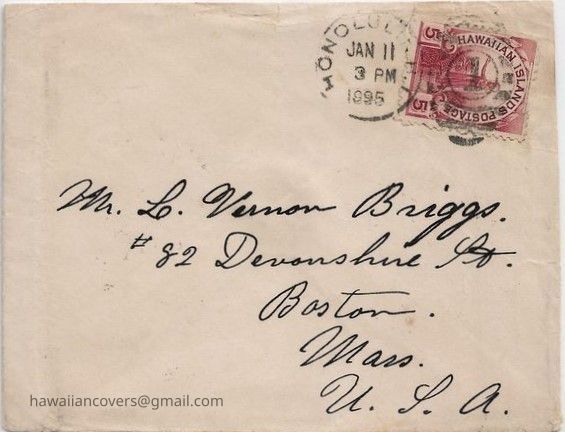 HONOLULU
JAN 11
3 PM
1895
HAWAIIAN ISLANDS POSTAGE
5 5
1
Mr. L. Vernon Briggs.
# 82 Devonshire St.
Boston.
Mass.
U. S. A.
hawaiiancovers@gmail.com